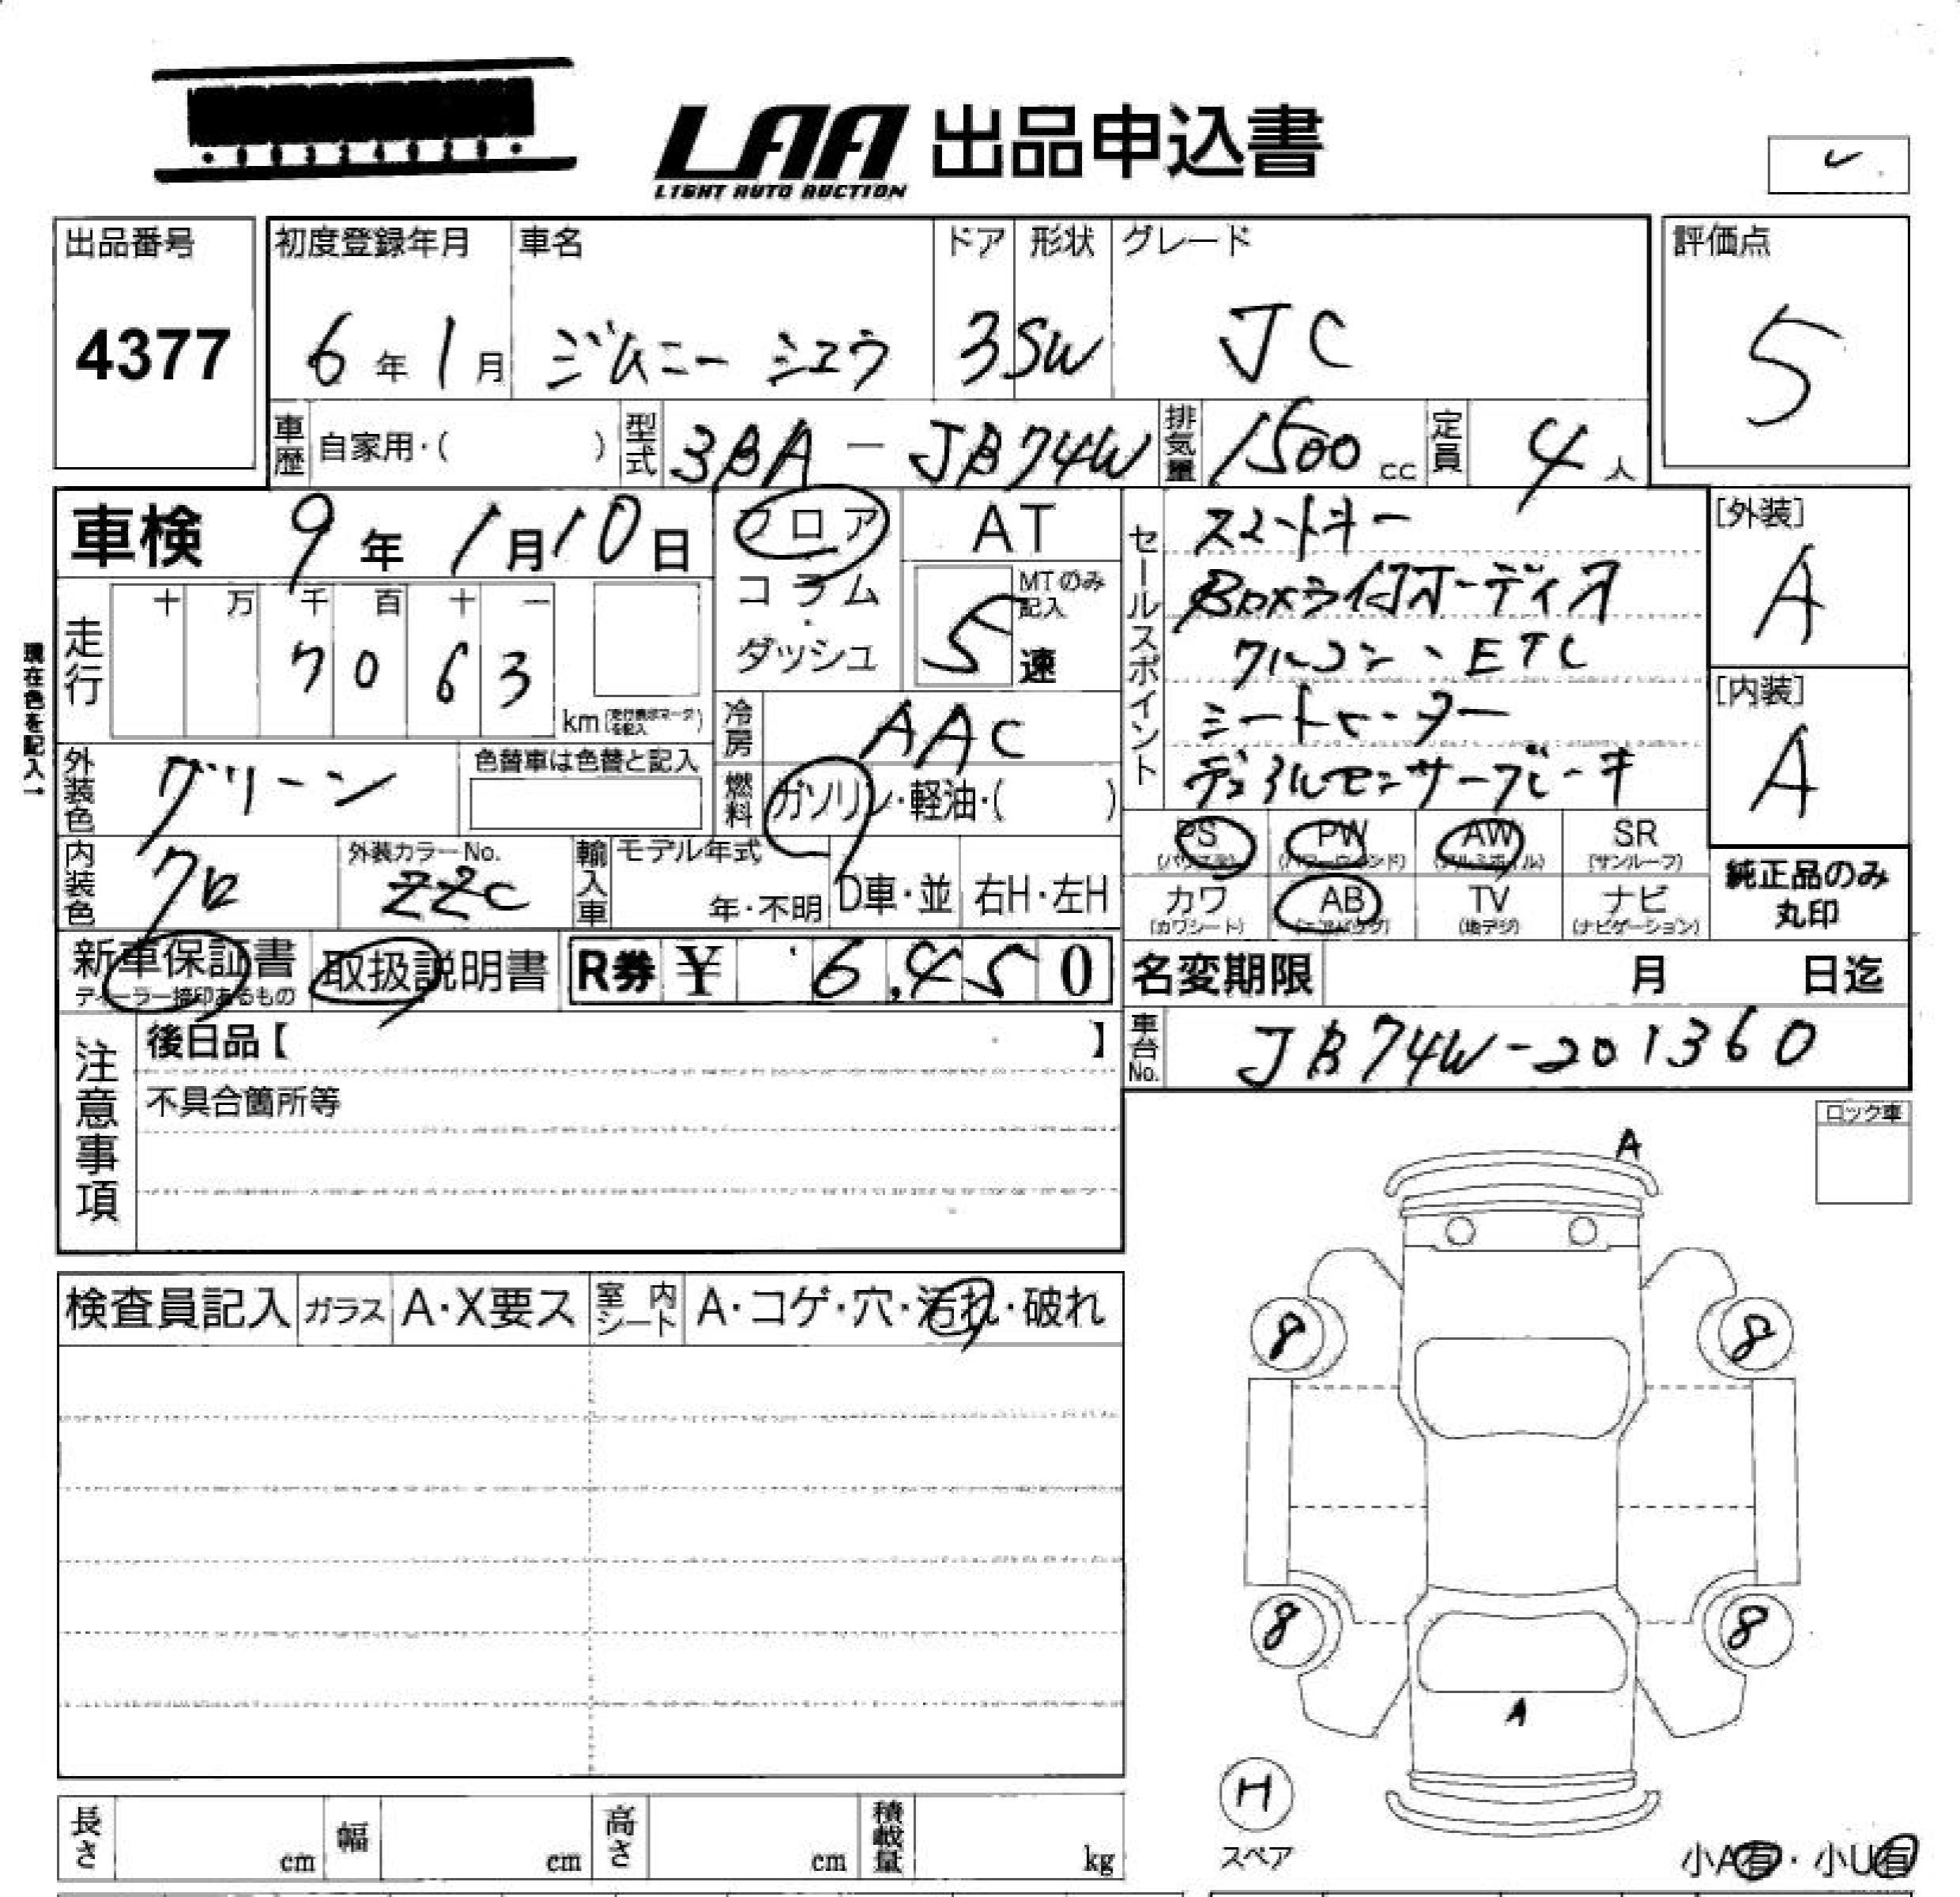 LAA 出品申込書
LIGHT AUTO AUCTION
出品番号
4377
初度登録年月
6年1月
車名
ジムニー シエラ
ドア
3
形状
SW
グレード
JC
評価点
5
車歴 自家用・( )
型式 3BA-JB74W
排気量 1500cc
定員 4人
車検 9年1月10日
フロア
コラム
・
ダッシュ
AT
MTのみ記入
5速
セールスポイント
スマートキー
Boxライ付オーディオ
クルコン、ETC
シートヒーター
デュアルセンサーブレーキ
[外装]
A
[内装]
A
現在色を記入→
走行
十 万 千 百 十 一
7 0 6 3
km
冷房 AAC
燃料 ガソリン・軽油・( )
外装色 グリーン
色替車は色替と記入
内装色 クロ
外装カラーNo.
ZZC
輸入車
モデル年式
年・不明
D車・並
右H・左H
PS
(パワステ)
PW
(パワーウインド)
AW
(アルミホイル)
SR
(サンルーフ)
カワ
(カワシート)
AB
(エアバック)
TV
(地デジ)
ナビ
(ナビゲーション)
純正品のみ
丸印
新車保証書
ディーラー捺印あるもの
取扱説明書
R券 ¥ 6,450
名変期限 月 日迄
車台No. JB74W-201360
注意事項
後日品【 】
不具合箇所等
ロック車
A
検査員記入
ガラス A・X要ス
室内シート A・コゲ・穴・汚れ・破れ
8 8
8 8
A
H
スペア
長さ cm
幅 cm
高さ cm
積載量 kg
小A有・小U有